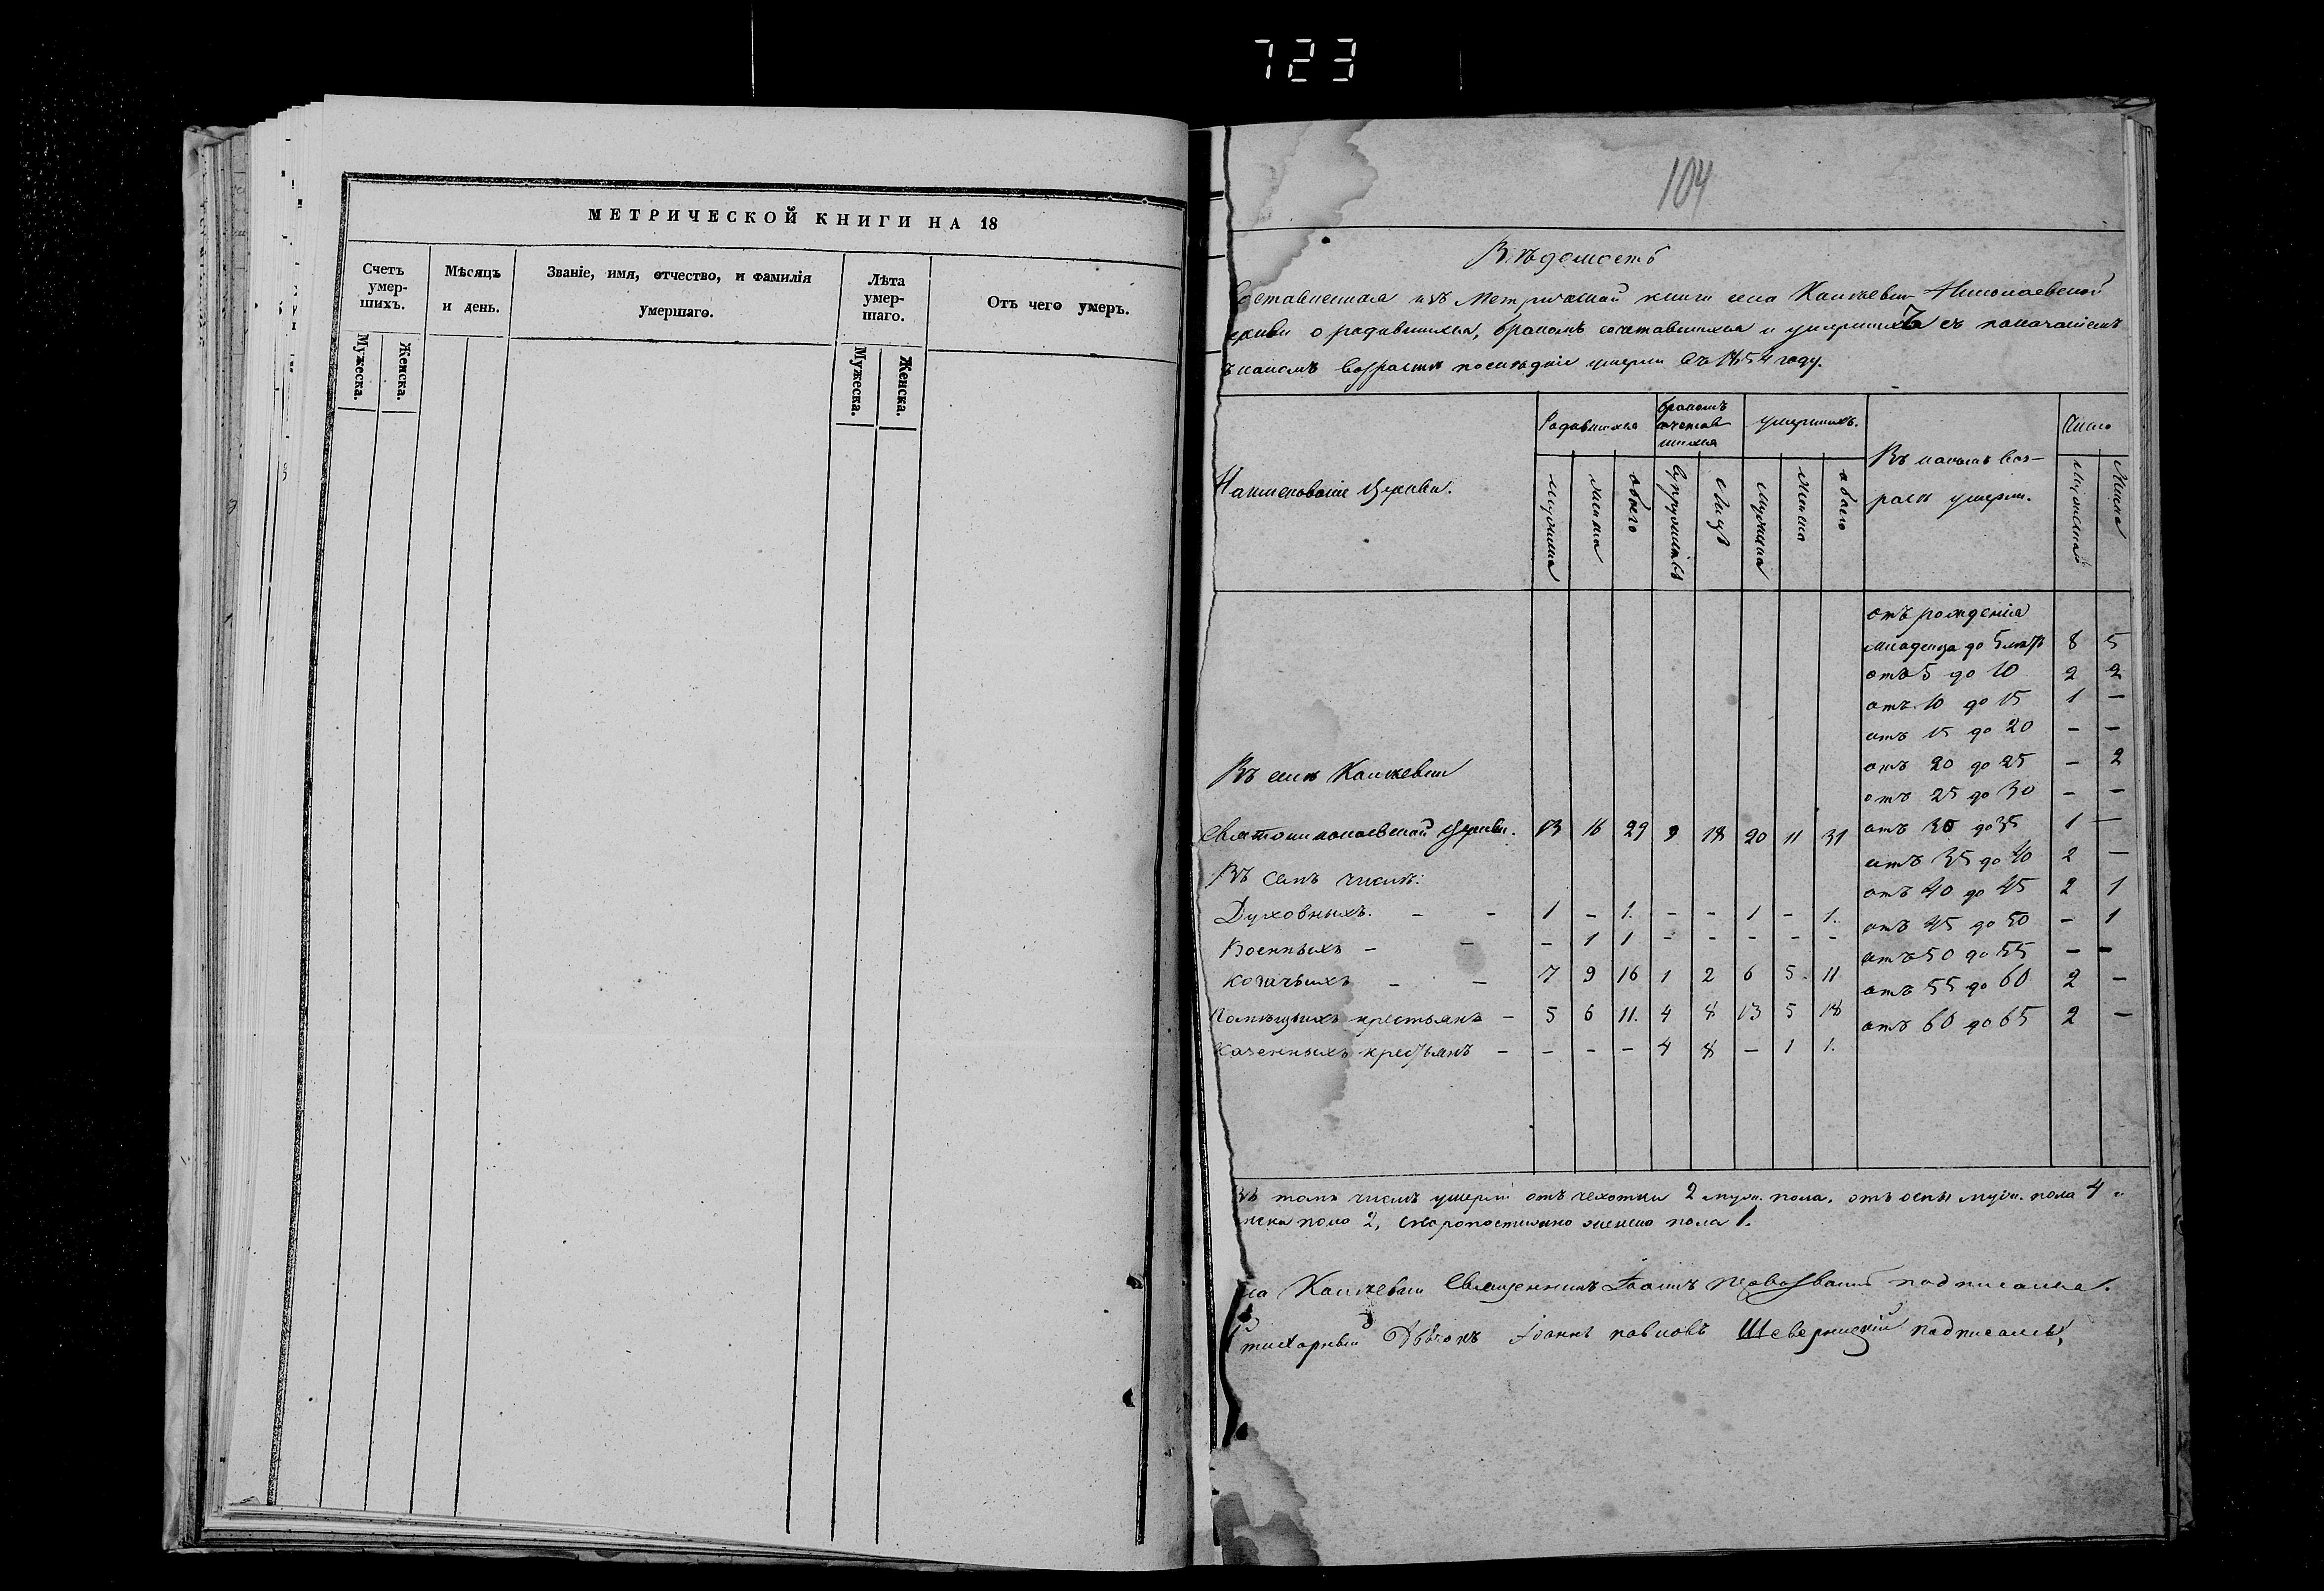 723
МЕТРИЧЕСКОЙ КНИГИ НА 18
Счетъ умер-шихъ.
Мужеска.
Женска.
Мѣсяцъ и день.
Званіе, имя, отчество, и фамилія умершаго.
Лѣта умер-шаго.
Мужеска.
Женска.
Отъ чего умеръ.
104
Вѣдомость
Составленная изъ Метрической книги села Канževи Николаевской
церкви о родившихся, бракомъ сочетавшихся и умершихъ съ показаніемъ
въ какомъ возрастѣ послѣдніе умерли въ 1854 году.
Наименованіе Церкви.
Родившихся
мужска
женска
обоего
бракомъ сочетав шихся
Супружествъ
Лицъ
умершихъ.
мужска
женска
обоего
Въ какомъ воз-
растѣ умерли.
Число
Мужска
Женска
отъ рожденія
младенца до 5 лѣтъ 8 5
отъ 5 до 10 2 2
отъ 10 до 15 1 —
отъ 15 до 20 — —
отъ 20 до 25 — 2
отъ 25 до 30 — —
отъ 30 до 35 1 —
отъ 35 до 40 2 —
отъ 40 до 45 2 1
отъ 45 до 50 — 1
отъ 50 до 55 — —
отъ 55 до 60 2 —
отъ 60 до 65 2 —
Въ селѣ
Святониколаевской Церкви. 13 16 29 9 18 20 11 31
Въ семъ числѣ:
Духовныхъ. — — 1 — 1. — — 1 — 1.
Военныхъ — — — 1 1 — — — — —
Козачьихъ — — 7 9 16 1 2 6 5. 11
Помѣщьихъ крестьянъ — 5 6 11. 4 8 13 5 18
Казенныхъ крестьянъ — — — — 4 8 — 1 1.
Въ томъ числѣ умерли отъ чехотки 2 муж. пола, отъ оспы муж. пола 4 и
женска пола 2, скоропостижно женска пола 1.
Священникъ Іоаннъ подписался.
Стихарный Дьячокъ Іоаннъ павловъ подписалъ,